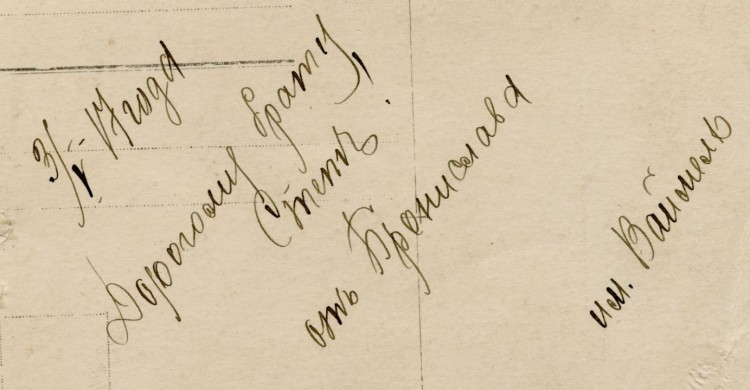 3/V-17 года
Дорогому брату,
Степѣ.
отъ Бронислава
им. Ваймель